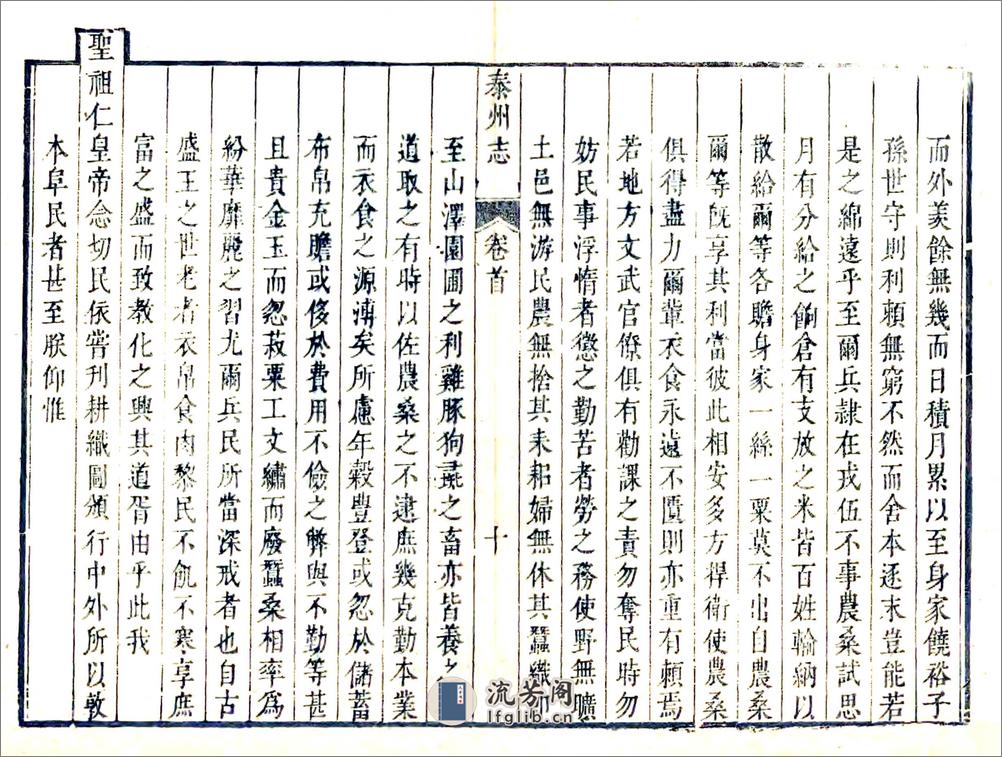 而外羨餘無幾而日積月累以至身家饒裕子
孫世守則利賴無窮不然而舍本逐末豈能若
是之綿遠乎至爾兵隷在戎伍不事農桑試思
月有分給之餉倉有支放之米皆百姓輸納以
散給爾等各贍身家一絲一粟莫不出自農桑
爾等旣享其利當彼此相安多方捍衛使農桑
俱得盡力爾輩衣食永遠不匱則亦重有賴焉
若地方文武官僚俱有勸課之責勿奪民時勿
妨民事浮惰者懲之勤苦者勞之務使野無曠
土邑無游民農無捨其耒耜婦無休其蠶織卽
泰州志
卷首
十
至山澤園圃之利雞豚狗彘之畜亦皆養之
道取之有時以佐農桑之不逮庶幾克勤本業
而衣食之源溥矣所慮年穀豐登或忽於儲蓄
布帛充贍或侈於費用不儉之弊與不勤等甚
且貴金玉而忽菽粟工文繡而廢蠶桑相率爲
紛華靡麗之習尤爾兵民所當深戒者也自古
盛王之世老者衣帛食肉黎民不飢不寒享庶
富之盛而致教化之興其道胥由乎此我
聖祖仁皇帝念切民依嘗刊耕織圖頒行中外所以敦
本阜民者甚至朕仰惟
流芳阁
lfglib.cn